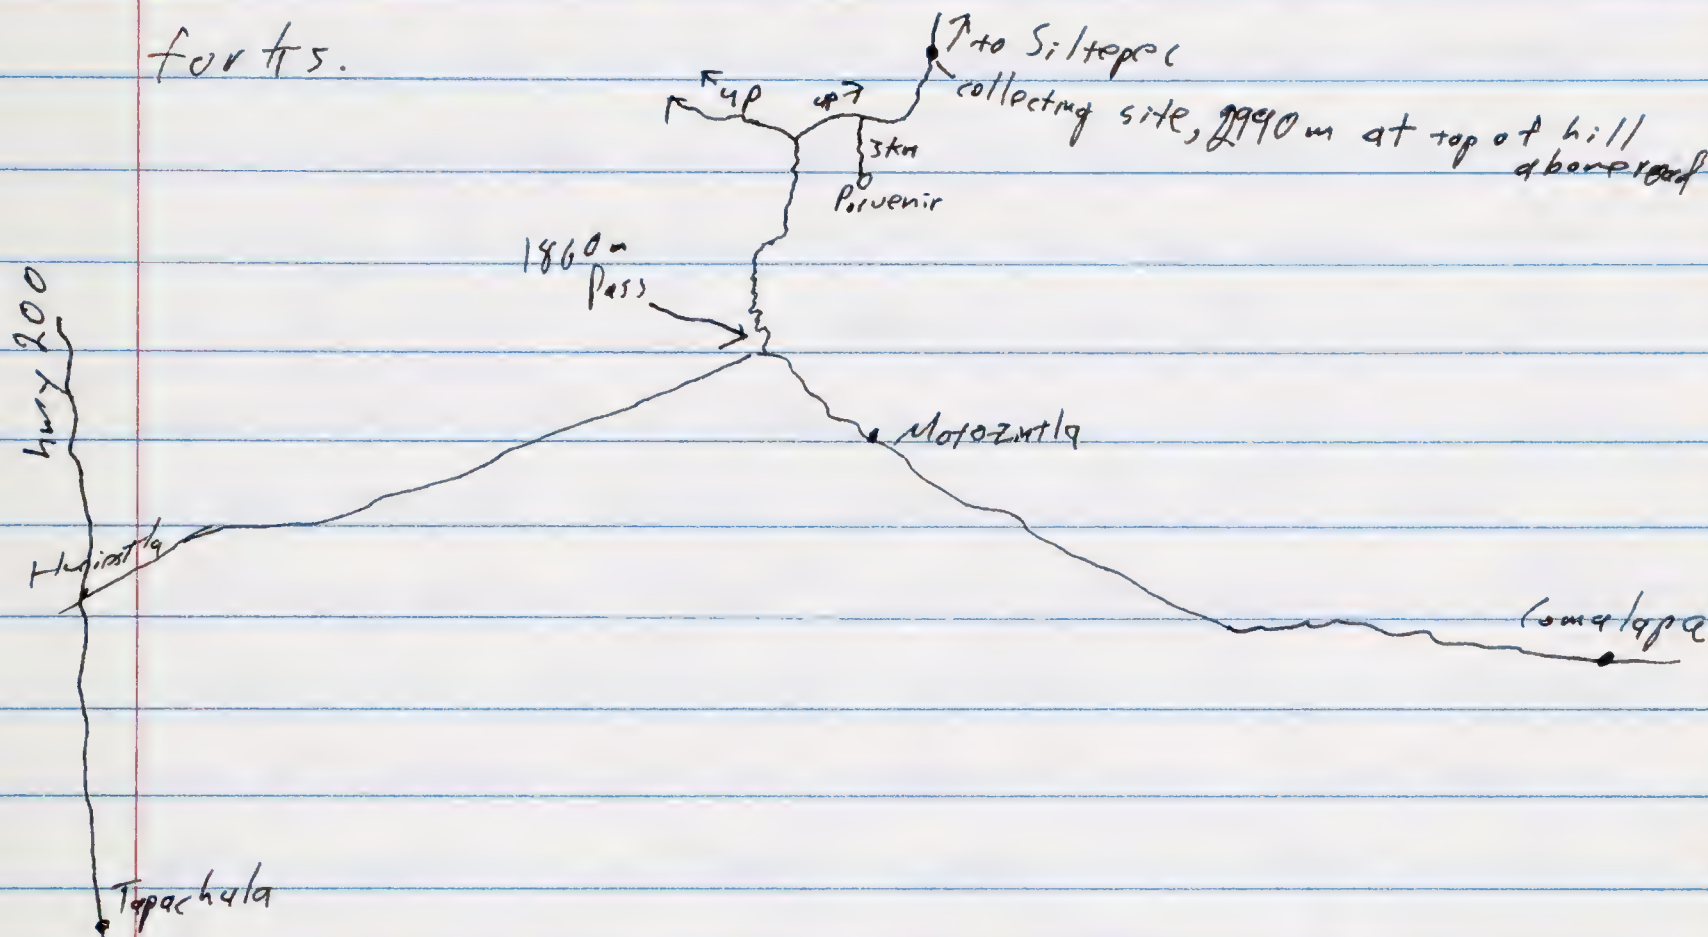 for Hs.
↑ to Siltepec
collecting site, 2990m at top of hill
above road
up
up
3km
Porvenir
1860m
Pass
hwy 200
Motozintla
Huixtla
Comalapa
Tapachula